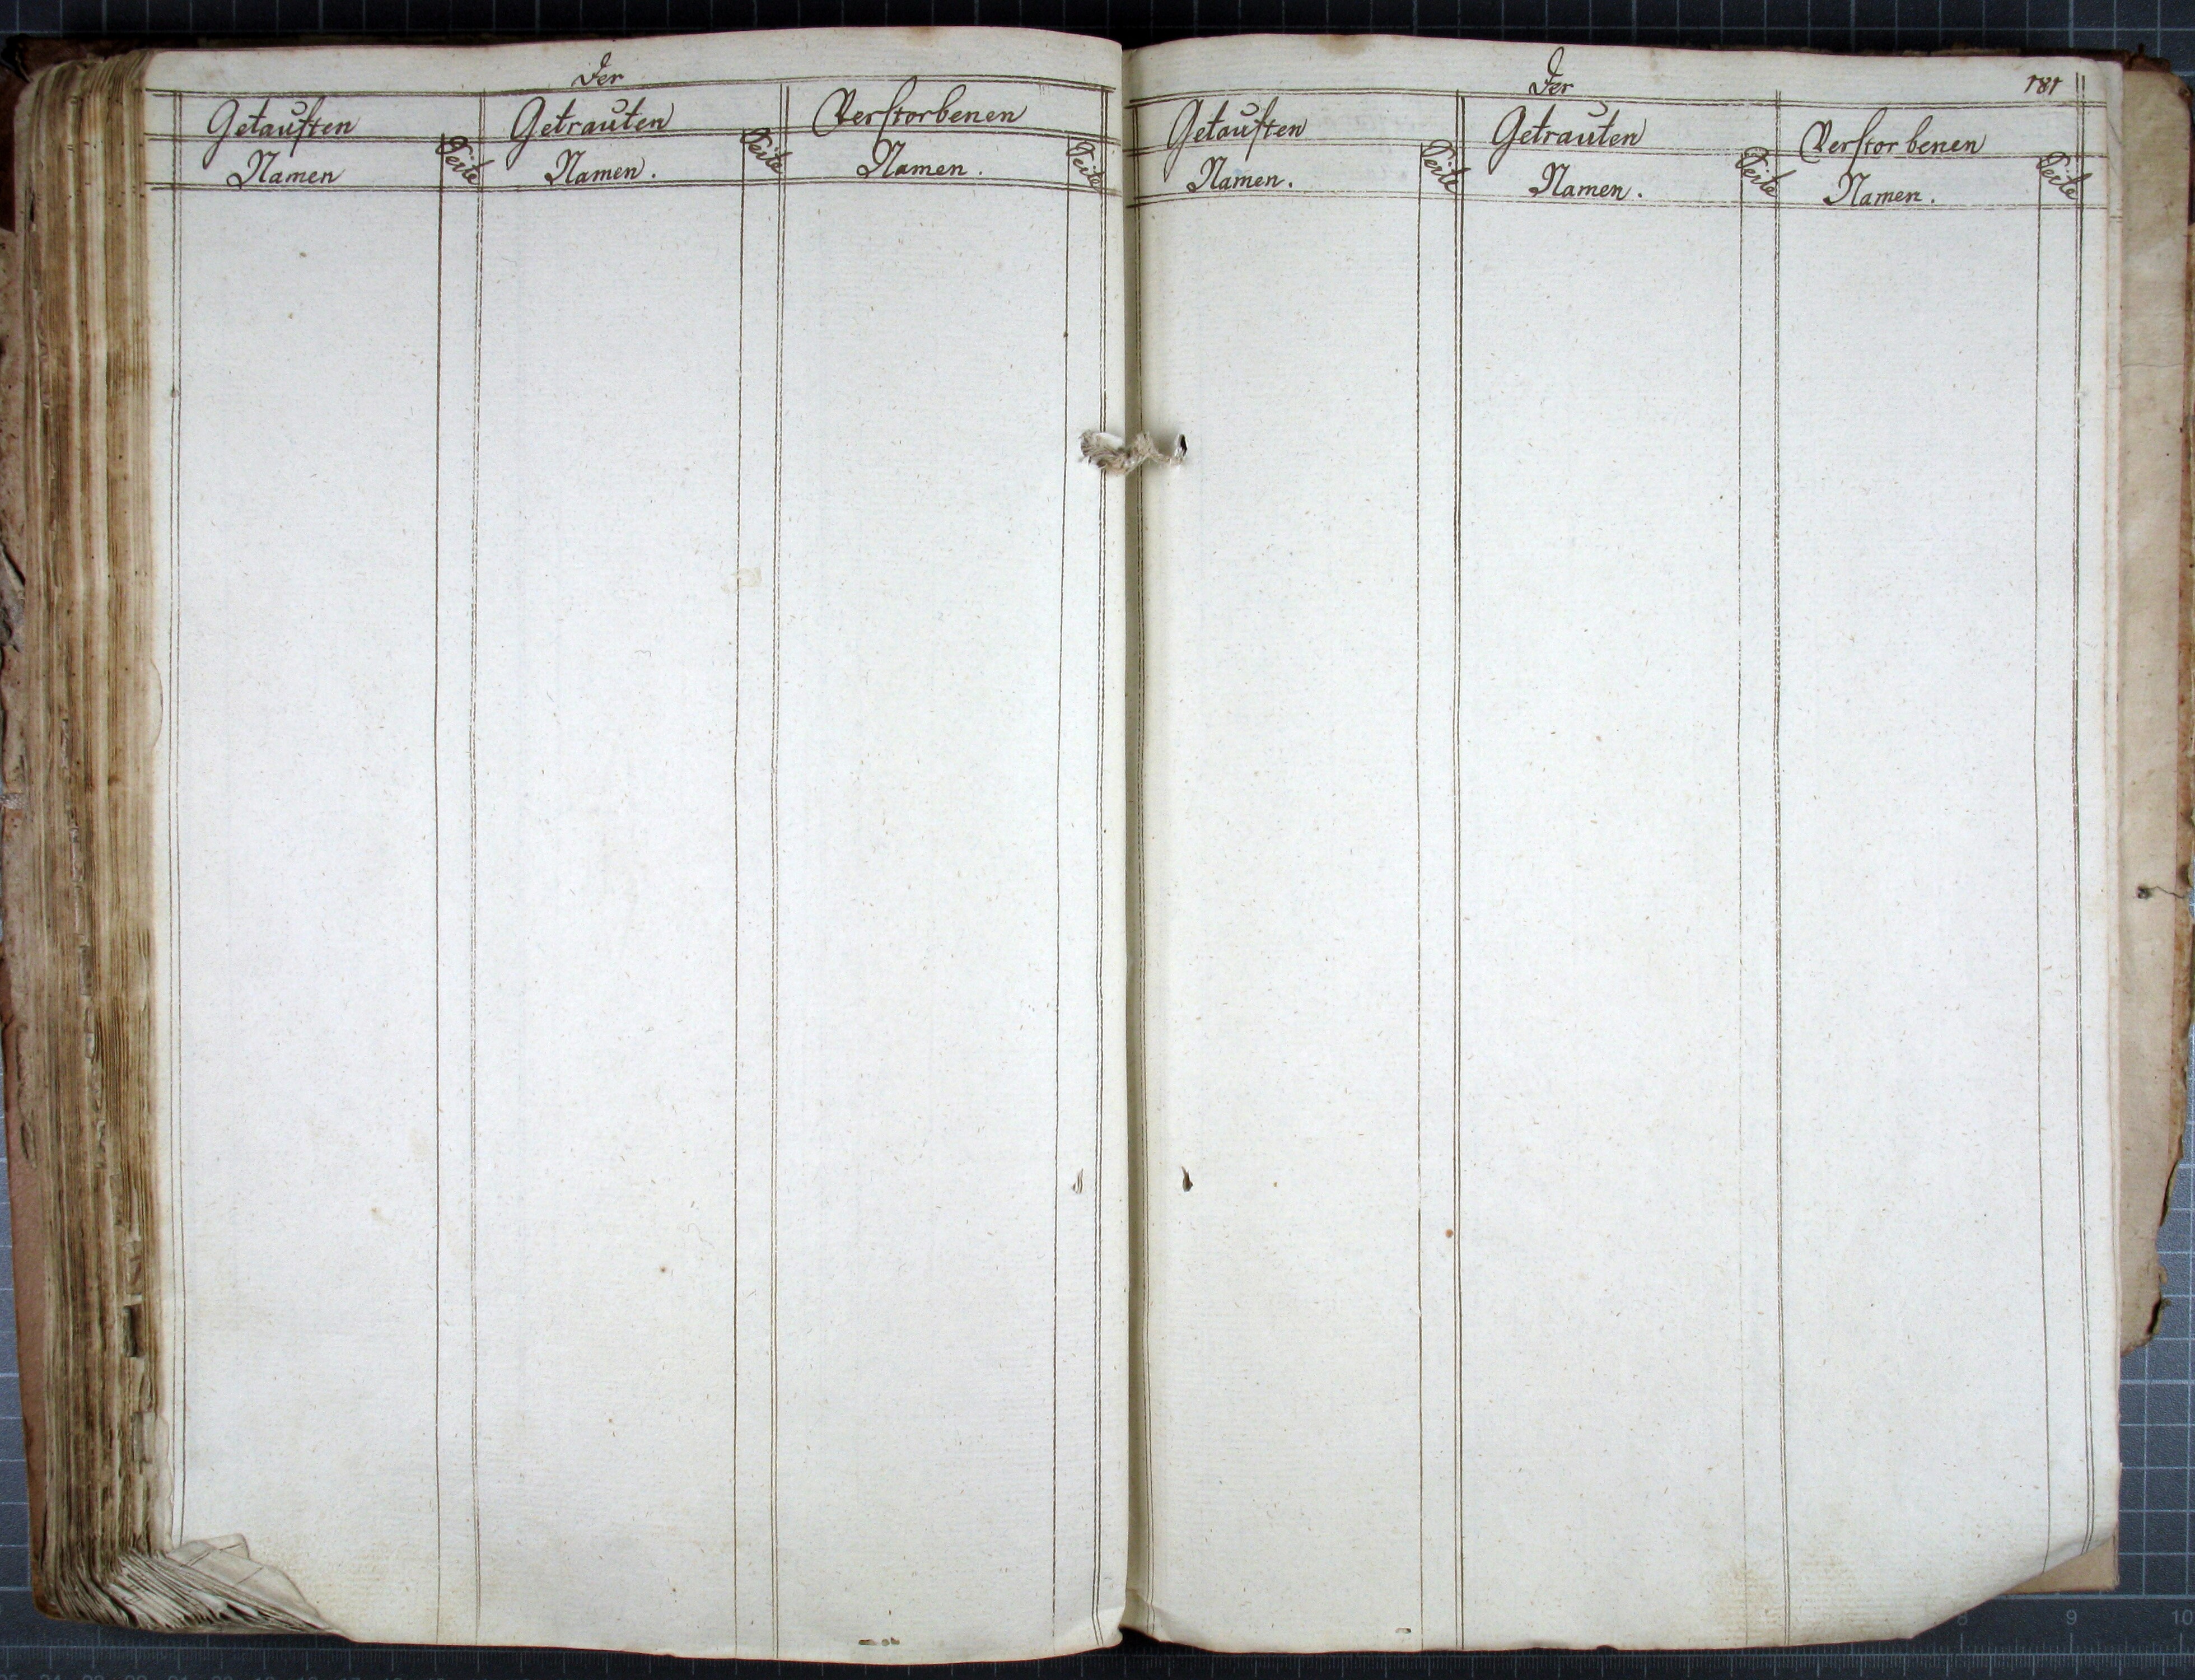 Der
Getauften Getrauten Verstorbenen
Namen Seite Namen. Seite Namen. Seite
Der 181
Getauften Getrauten Verstorbenen
Namen. Seite Namen. Seite Namen. Seite
8 9 10